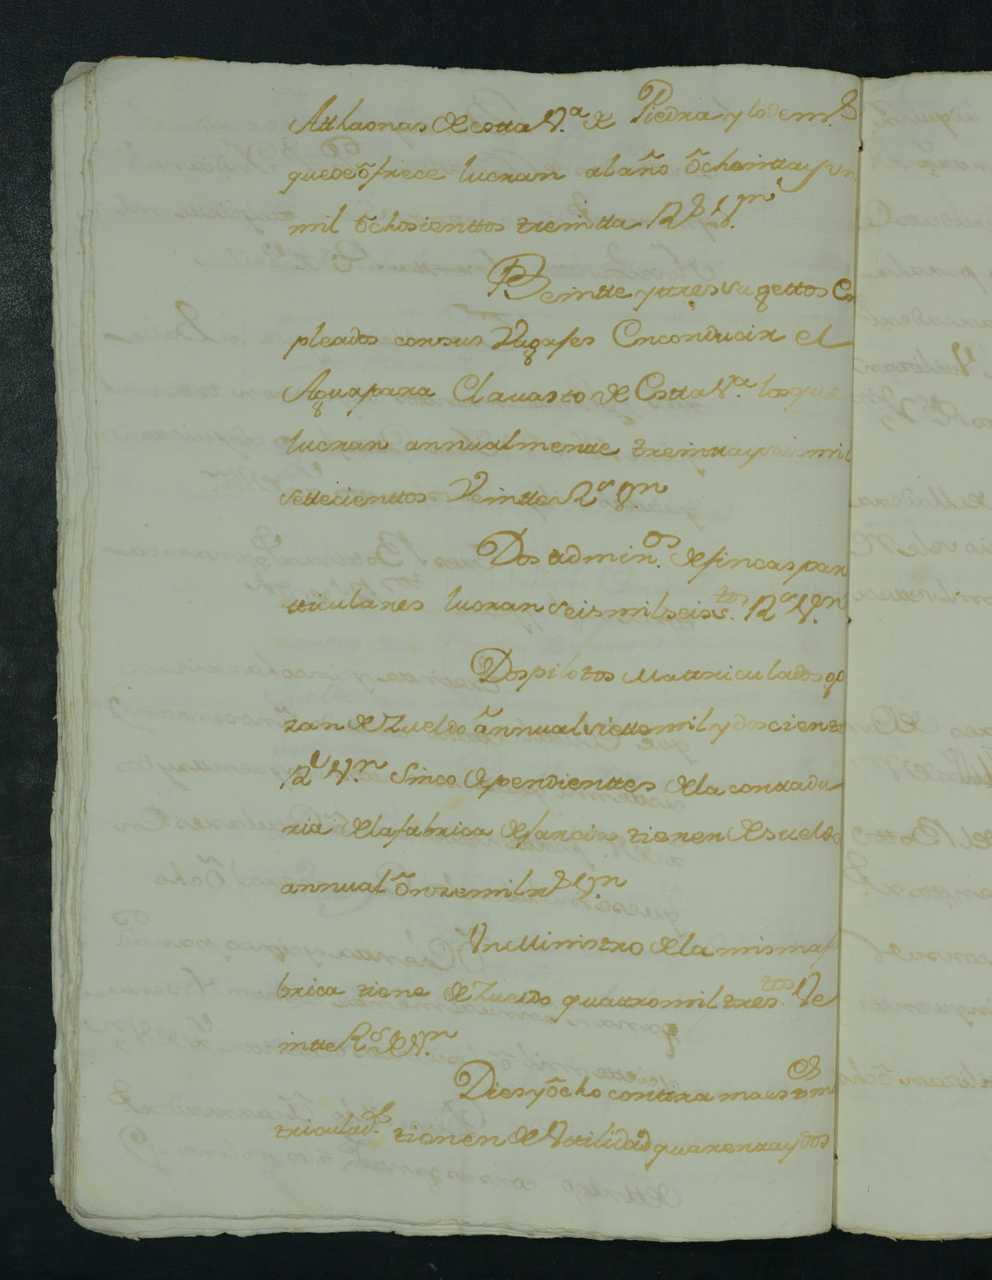 Atthaonas de cotta V.ª de Piedra y lo dem.s
que se ofrece lucran al año ochentta y un
mil ochosienttos treintta R.s V.n
Beintte y ttres sugettos Em
pleados con sus Vagafes En conducir el
Agua para El avasto de Estta V.ª los que
lucran annualmente treintta y seis mil
settecienttos Veintte R.s V.n
Dos admin.os de fincas par
tticulares lucran seis mil seisc.tos R.s V.n
Dos pilotos Mattriculados go
zan de Zueldo annual siette mil y doscientos
R.s V.n Sinco dependienttes de la contadu
ria de la fabrica de farcia tienen de sueldo
annual onze mil r.s V.n
Un Ministro de la misma fa
brica tiene de Zueldo quattro mil tres.tos Ve
intte R.s de V.n
Dies y ocho conttramaes
triculad.s tienen de Utilidad quarenta y dos